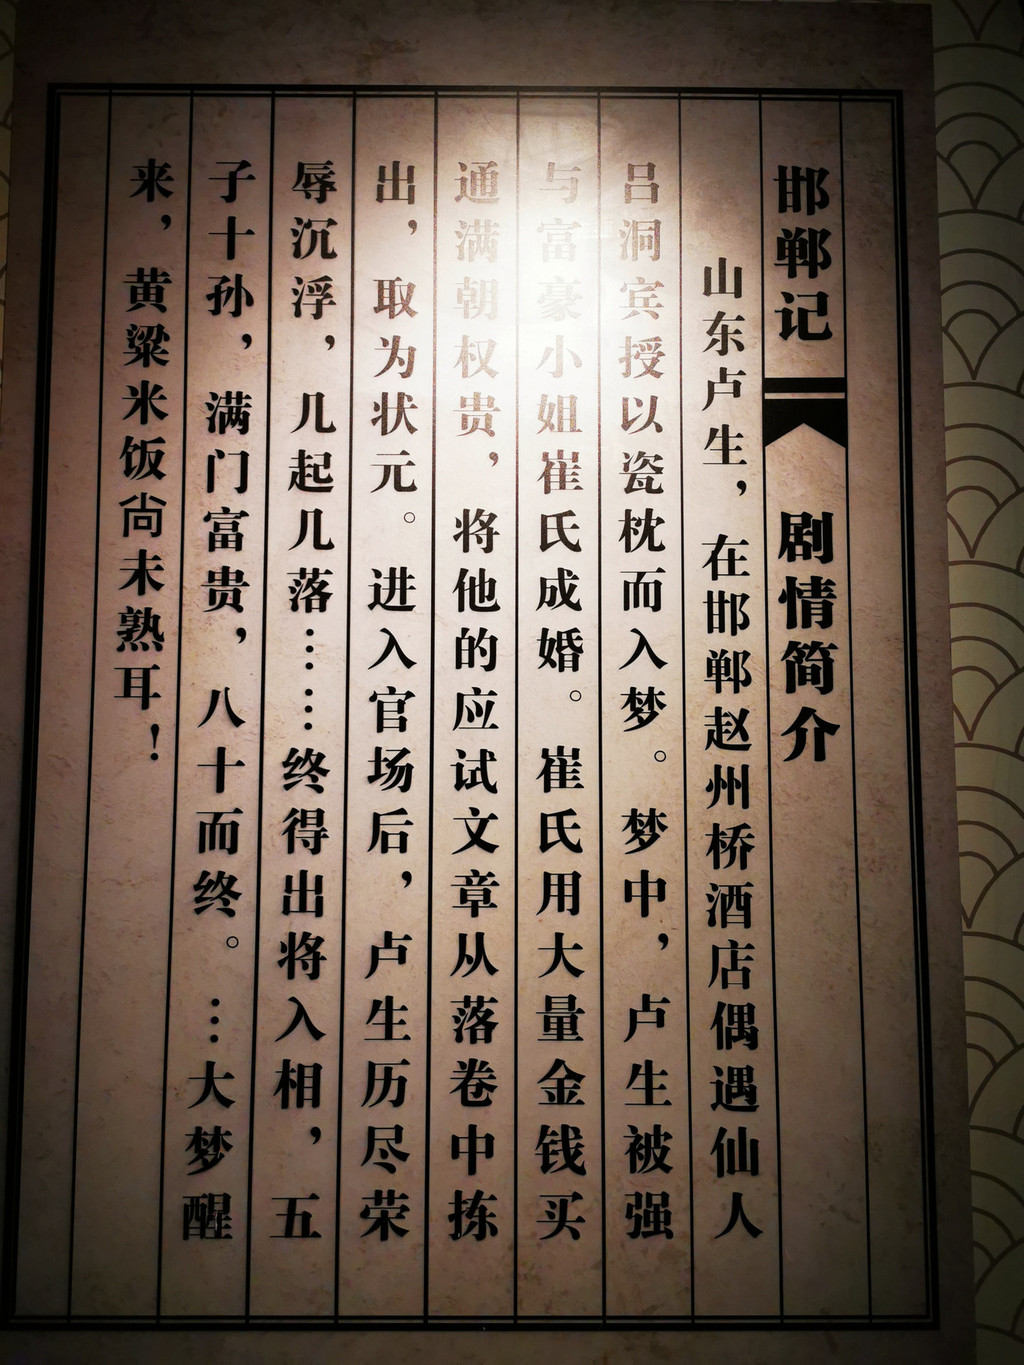 邯郸记 剧情简介
山东卢生，在邯郸赵州桥酒店偶遇仙人
吕洞宾授以瓷枕而入梦。梦中，卢生被强
与富豪小姐崔氏成婚。崔氏用大量金钱买
通满朝权贵，将他的应试文章从落卷中拣
出，取为状元。进入官场后，卢生历尽荣
辱沉浮，几起几落……终得出将入相，五
子十孙，满门富贵，八十而终。…大梦醒
来，黄粱米饭尚未熟耳！